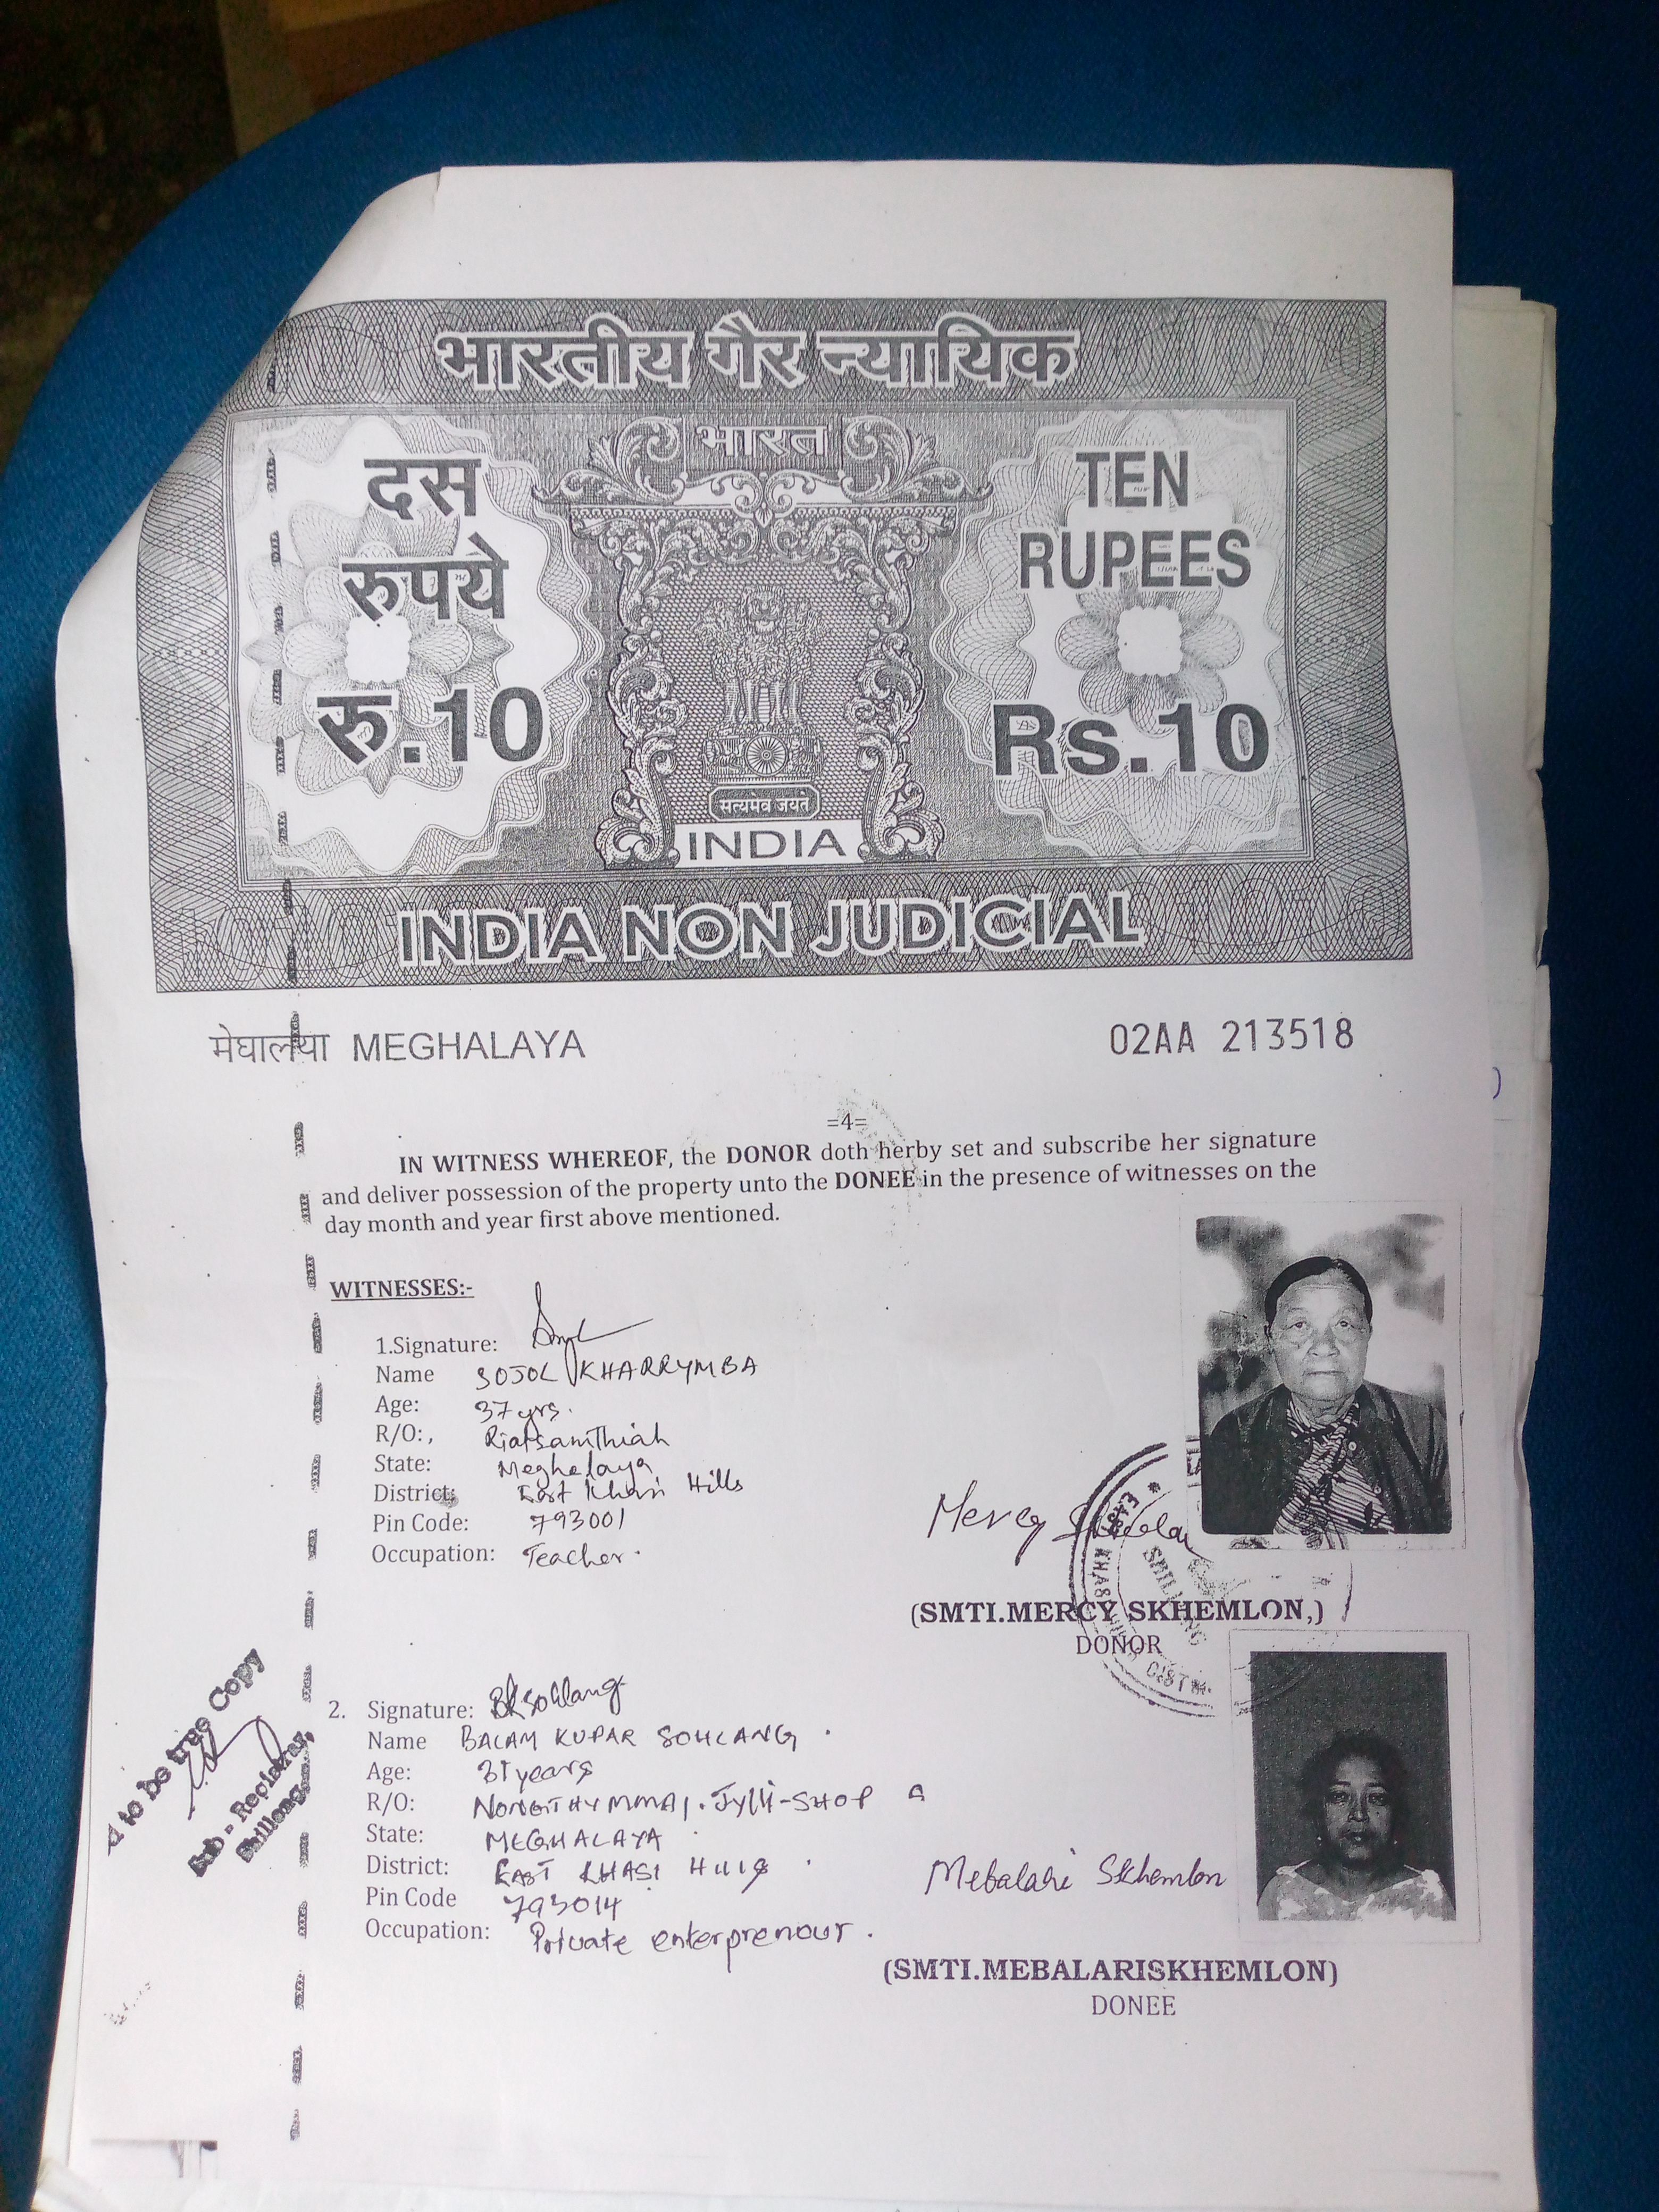 भारतीय गैर न्यायिक
भारत
दस
रुपये
रु.10
TEN
RUPEES
Rs.10
सत्यमेव जयते
INDIA
INDIA NON JUDICIAL
मेघालया MEGHALAYA
02AA 213518
=4=
IN WITNESS WHEREOF, the DONOR doth herby set and subscribe her signature
and deliver possession of the property unto the DONEE in the presence of witnesses on the
day month and year first above mentioned.
WITNESSES:-
1.Signature:
Name SOJOL KHARRYMBA
Age: 37 yrs.
R/O:, Riatsamthiah
State: Meghalaya
District: East Khasi Hills
Pin Code: 793001
Occupation: Teacher.
Mercy
(SMTI.MERCY SKHEMLON,)
DONOR
EAST KHASI HILLS DIST
SHILLONG
2. Signature: BKSohlang
Name BALAM KUPAR SOHLANG
Age: 31 years
R/O: NONGTHYMMAI. Jylli-SHOP
State: MEGHALAYA
District: EAST KHASI HILLS
Pin Code 793014
Occupation: Private enterprenour.
Mebalari Skhemlon
(SMTI.MEBALARISKHEMLON)
DONEE
to be true Copy
Sub-Registrar,
Shillong